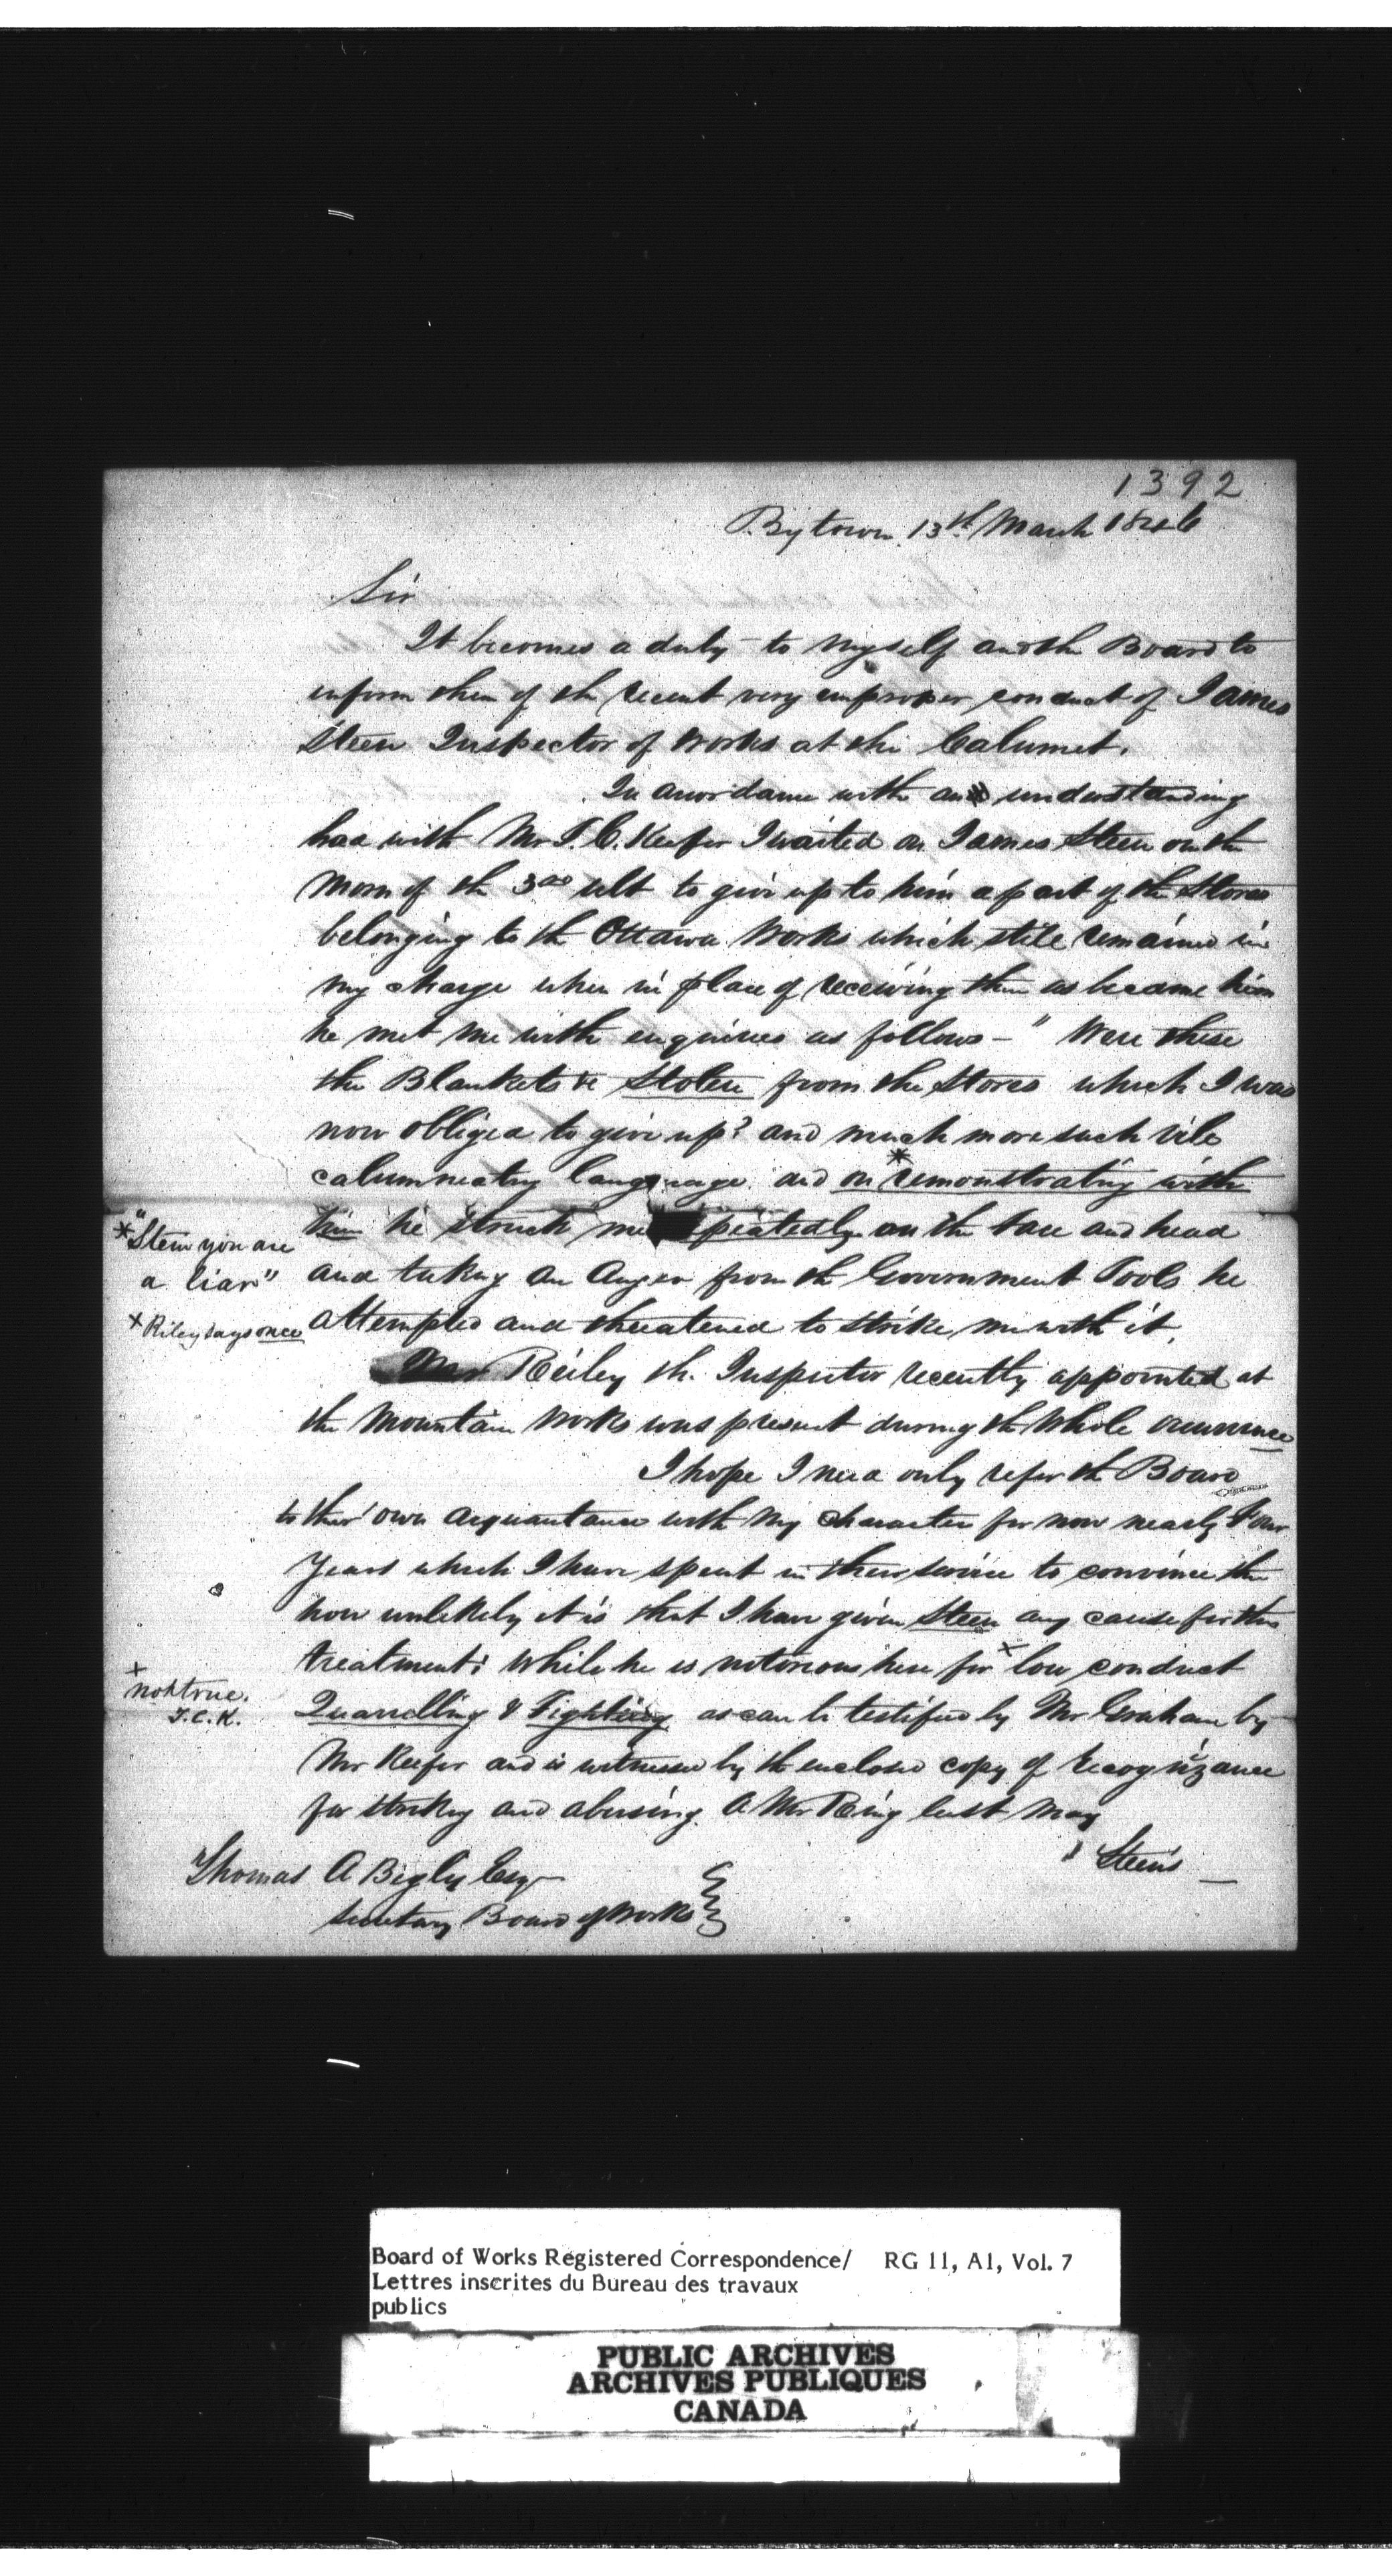 1392
Bytown 13th March 1846
Sir
It becomes a duty to myself and the Board to
inform them of the recent very improper conduct of James
Steen Inspector of Works at the Calumet.
In accordance with an understanding
had with Mr T. C. Keefer I waited on James Steen on the
Morn of the 3rd ult to give up to him a part of the Stores
belonging to the Ottawa Works which still remained in
my charge when in place of receiving them as became him
he met me with enquiries as follows – " Were these
the Blankets &c Stolen from the Stores which I was
now obliged to give up? and much more such vile
calumneatry language and on * remonstrating with
him he struck me repeatedly on the face and head
*"Steen you are
a liar"
and taking an Auger from the Government Tools he
x Riley says once
attempted and threatened to strike me with it.
Mr Reiley the Inspector recently appointed at
the Mountain Works was present during the Whole occurrence
I hope I need only refer the Board
to their own acquaintance with my character for now nearly Four
Years which I have spent in their service to convince them
how unlikely it is that I have given Steen any cause for this
treatment; While he is notorious here for x low conduct
x
not true.
T.C.K.
Quarrelling & Fighting as can be testified by Mr Graham by
Mr Keefer and is witnessed by the enclosed copy of recognizance
for striking and abusing A Mr King last May
Steen's
Thomas A Begly Esqr
Secretary Board of Works
Board of Works Registered Correspondence/ RG 11, A1, Vol. 7
Lettres inscrites du Bureau des travaux
publics
PUBLIC ARCHIVES
ARCHIVES PUBLIQUES
CANADA